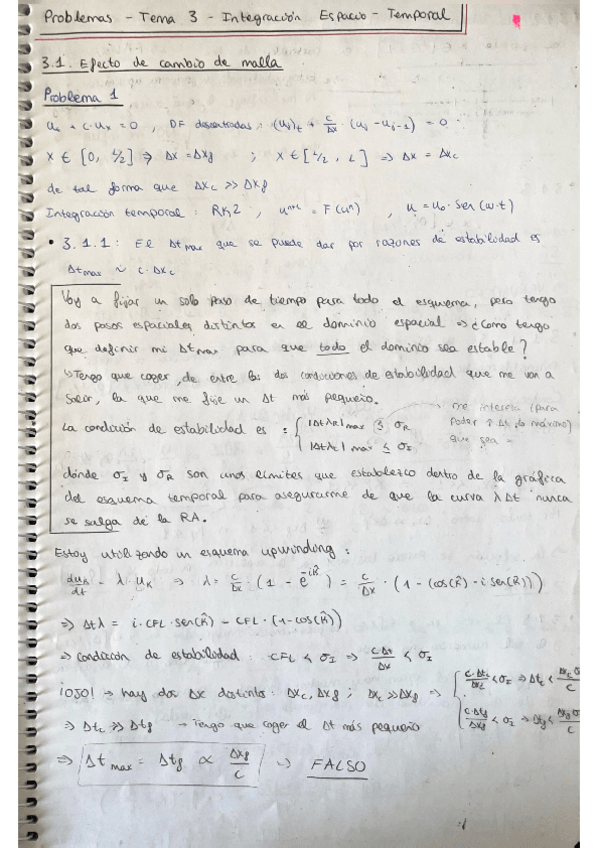 Problemas - Tema 3 - Integración Espacio - Temporal
3.1. Efecto de cambio de malla
Problema 1
u_t + c·u_x = 0 , DF descentradas : (u_j)_t + c/Δx · (u_j - u_{j-1}) = 0
x ∈ [0, L/2] ⇒ Δx = Δx_f ; x ∈ [L/2, L] ⇒ Δx = Δx_c
de tal forma que Δx_c >> Δx_f
Integración temporal : RK2 , u^{n+1} = F(u^n) , u = u_0 · sen(w·t)
• 3.1.1 : El Δt_max que se puede dar por razones de estabilidad es
Δt_max ~ c·Δx_c
Voy a fijar un solo paso de tiempo para todo el esquema, pero tengo
dos pasos espaciales distintos en el dominio espacial ⇒ ¿Como tengo
que definir mi Δt_max para que todo el dominio sea estable?
↳ Tengo que coger, de entre las dos condiciones de estabilidad que me van a
salir, la que me fije un Δt más pequeño.
La condición de estabilidad es : { |Δt λ_R|_max ≤ σ_R
|Δt λ_I|_max ≤ σ_I
me interesa (para
poder ↑ Δt lo máximo)
que sea =
dónde σ_I y σ_R son unos límites que establezco dentro de la gráfica
del esquema temporal para asegurarme de que la curva λΔt nunca
se salga de la RA.
Estoy utilizando un esquema upwinding :
du_k/dt = λ·u_k ⇒ λ = c/Δx · (1 - e^{-ik̂}) = c/Δx · (1 - (cos(k̂) - i sen(k̂)))
⇒ Δtλ = i·CFL·sen(k̂) - CFL·(1-cos(k̂))
⇒ condición de estabilidad : CFL < σ_I ⇒ c·Δt/Δx < σ_I
¡OJO! → hay dos Δx distintos : Δx_c, Δx_f ; Δx_c >> Δx_f ⇒ { c·Δt_c/Δx_c < σ_I ⇒ Δt_c < Δx_c σ/c
c·Δt_f/Δx_f < σ_I ⇒ Δt_f < Δx_f σ/c
⇒ Δt_c >> Δt_f → Tengo que coger el Δt más pequeño
⇒ Δt_max = Δt_f ∝ Δx_f/c ↳ FALSO